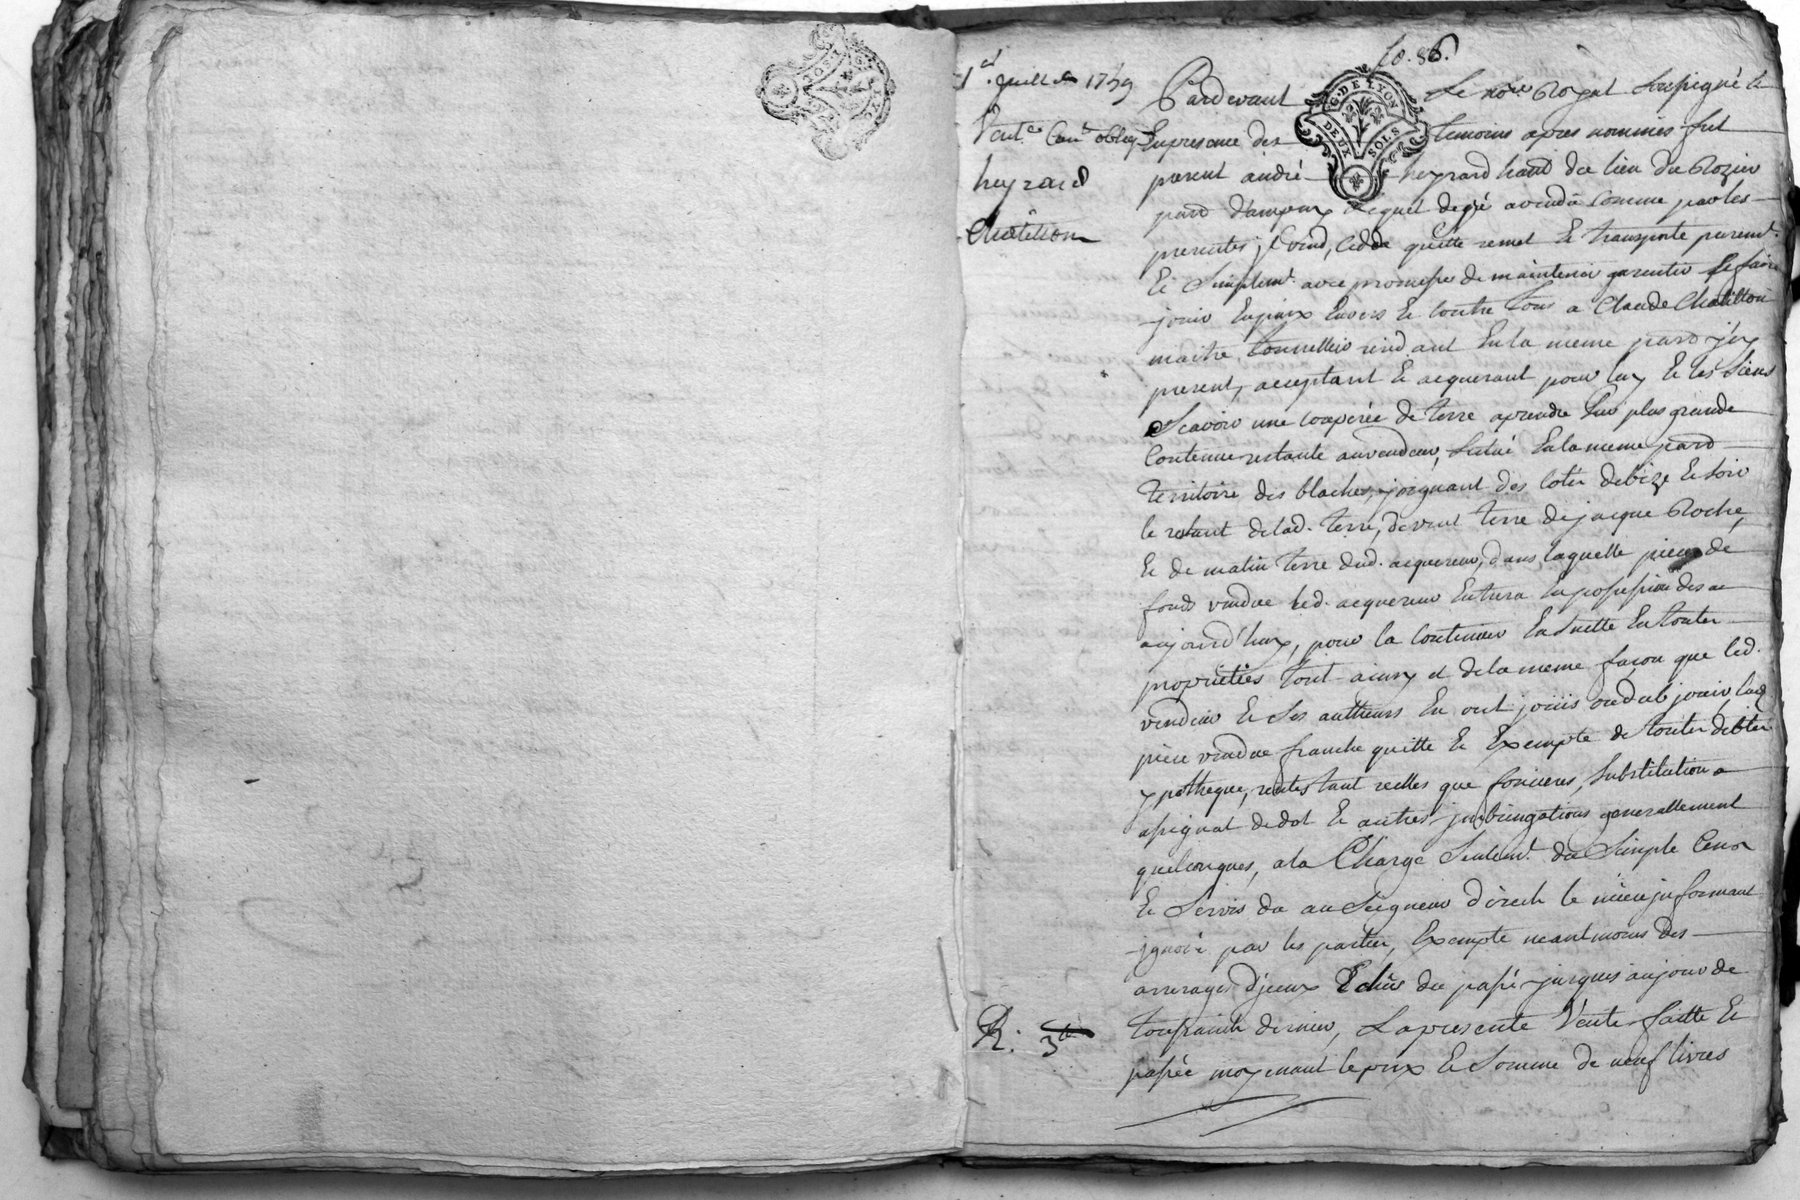 fo. 86.
1er. Juillet 1759
Vente
heyraud
Chatillon
R. 3tt
G. DE LYON
DEUX SOLS
Pardevant Le nore Royal soussigné &
En presence des temoins apres nommés fut
present andré heyraud habit du lieu du Rozier
paroisse lequel de gré a vendu comme par les
presentes jl vend, cedde quitte remet & transporte puremt.
Et simplemt. avec promesse de maintenir garentir & faire
jouir En paix Envers & contre tous a Claude Chatillon
maitre residant En la meme paroisse jcy
present, acceptant & acquerant pour luy & les siens
Scavoir une de terre a prendre sur plus grande
Contenue restante au vendeur, situé En la meme par.
territoire des blaches, joignant des cotes de bize & soir
le restant de lad. terre, de vent terre de jacque Roche,
Et de matin terre dud. acquereur, dans laquelle piece de
fonds vendue led. acquereur Entrera En possession des ce
aujourd'huy, pour la continuer Ensuitte En toutes
proprietés tout ainsy et de la meme façon que led.
vendeur & ses autheurs En ont jouis ou dub jouir, lad.
piece vendue franche quitte & Exempte de toutes debtes
ypotheque, rentes tant que foncieres, substitution
assignat de dot & autres generallement
quelconques, a la Charge seulemt. du simple Cens
Et servis du au Seigneur direct le mieux jnformant
jgnoré par les parties, Exempte neantmoins des
arrerages d'jceux Echus du passé jusques au jour de
toussaint dernier, La presente Vente faitte &
passée moyenant le prix & somme de neuf livres